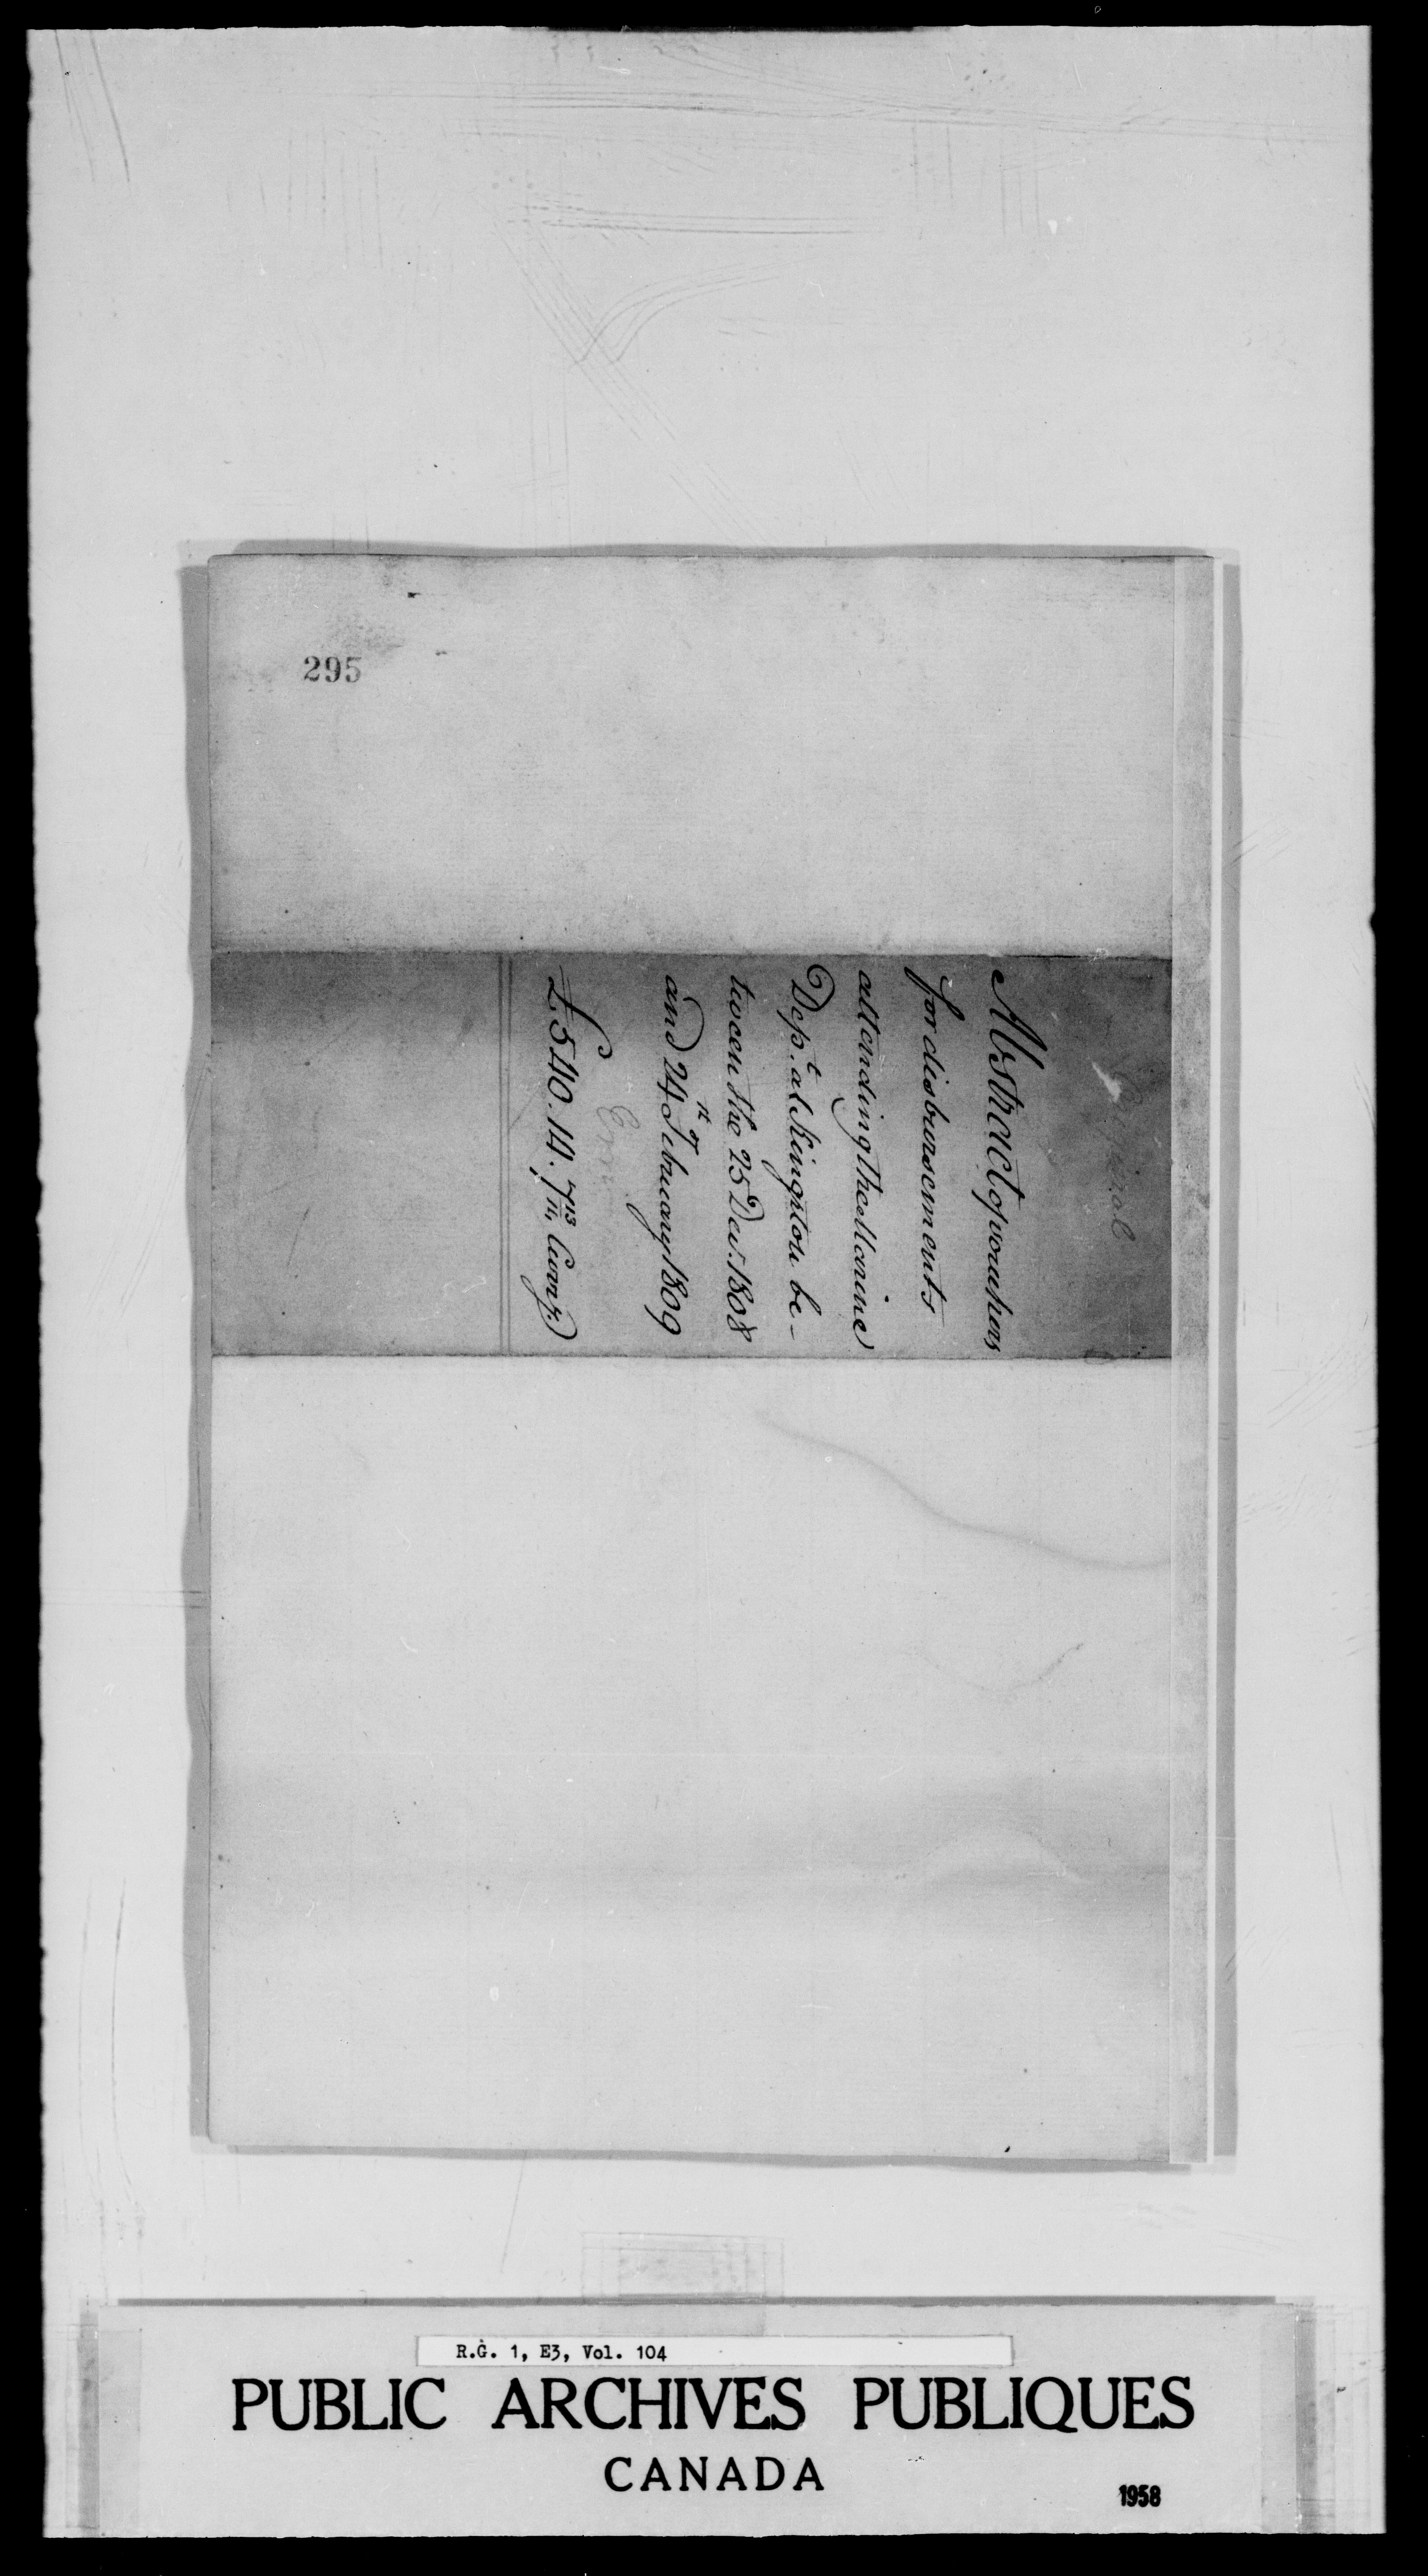 295
Abstract of vouchers
for disbursements
attending the Marine
Dep.t at Kingston be-
tween the 25 Dec. 1808
and 24 February 1809
£540.14.7 13/14 Curr.y
R.G. 1, E3, Vol. 104
PUBLIC ARCHIVES PUBLIQUES
CANADA
1958